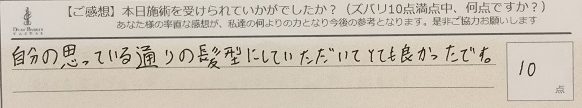 【ご感想】本日施術を受けられていかがでしたか？（ズバリ10点満点中、何点ですか？）
あなた様の率直な感想が、私達の何よりの力となり今後の参考となります。是非ご協力お願いします
自分の思っている通りの髪型にしていただいてとても良かったです。
10
点